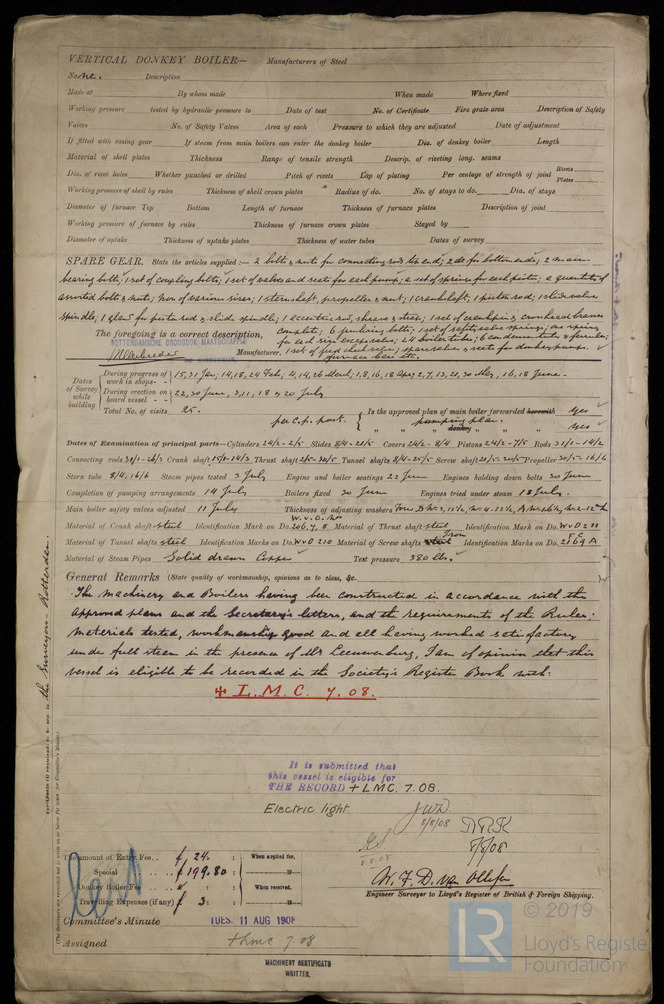 VERTICAL DONKEY BOILER— Manufacturers of Steel
No ne. Description
Made at By whom made When made Where fixed
Working pressure tested by hydraulic pressure to Date of test No. of Certificate Fire grate area Description of Safety
Valves No. of Safety Valves Area of each Pressure to which they are adjusted Date of adjustment
If fitted with easing gear If steam from main boilers can enter the donkey boiler Dia. of donkey boiler Length
Material of shell plates Thickness Range of tensile strength Descrip. of riveting long. seams
Dia. of rivet holes Whether punched or drilled Pitch of rivets Lap of plating Per centage of strength of joint Rivets Plates
Working pressure of shell by rules Thickness of shell crown plates Radius of do. No. of stays to do. Dia. of stays
Diameter of furnace Top Bottom Length of furnace Thickness of furnace plates Description of joint
Working pressure of furnace by rules Thickness of furnace crown plates Stayed by
Diameter of uptake Thickness of uptake plates Thickness of water tubes Dates of survey
SPARE GEAR. State the articles supplied:— 2 bolts & nuts for connecting rods top end; 2 do for bottom ends; 2 main
bearing bolts; 1 set of coupling bolts; 1 set of valves and seats for each pump; a set of springs for each piston; a quantity of
assorted bolts & nuts; iron of various sizes; 1 sternshaft, propeller & nut; 1 crankshaft; 1 piston rod; 1 slide valve
spindle; 1 gland for piston rod & slide spindle; 1 eccentric rod, sheave & strap; 1 set of crankpin & crosshead brasses
complete; 6 junkring bolts; 1 set of safety valve springs; one spring
The foregoing is a correct description,
for each size escape valve; 24 boiler tubes; 6 condenser tubes & ferrules;
ROTTERDAMSCHE DROOGDOK MAATSCHAPPIJ
Manufacturer. 1 set of feed check valves; spare valves & seats for donkey pumps.
furnace bars etc.
Dates of Survey while building
During progress of work in shops— 15, 31 Jan; 14, 18, 24 Feb; 4, 14, 26 March; 1, 8, 16, 18 Apr; 2, 7, 13, 20, 30 May, 16, 18 June.
During erection on board vessel— 22, 30 June, 3, 11, 18 & 20 July
Total No. of visits 25.
Is the approved plan of main boiler forwarded herewith yes
per C.p. post. pumping plan.
" " " donkey " " " yes
Dates of Examination of principal parts—Cylinders 24/2 - 2/5 Slides 8/4 - 20/5 Covers 24/2 - 8/4 Pistons 24/2 - 7/5 Rods 31/1 - 14/2
Connecting rods 31/1 - 26/3 Crank shaft 15/1 - 14/3 Thrust shaft 2/5 - 30/5 Tunnel shafts 8/4 - 25/5 Screw shaft 20/5 - 30/5 Propeller 30/5 - 16/6
Stern tube 8/4, 16/6 Steam pipes tested 3 July Engine and boiler seatings 22 June Engines holding down bolts 30 June
Completion of pumping arrangements 14 July Boilers fixed 30 June Engines tried under steam 18 July.
Main boiler safety valves adjusted 11 July Thickness of adjusting washers
Material of Crank shaft steel Identification Mark on Do. Material of Thrust shaft steel Identification Mark on Do. WvO 211
Material of Tunnel shafts steel Identification Marks on Do. WvO 210 Material of Screw shafts Iron Identification Marks on Do. 2169 A
Material of Steam Pipes Solid drawn Copper Test pressure 380 lbs.
General Remarks (State quality of workmanship, opinions as to class, &c.
The Machinery and Boilers having been constructed in accordance with the
approved plans and the Secretary's letters, and the requirements of the Rules;
materials tested, workmanship good and all having worked satisfactory
under full steam in the presence of Mr Leeuwenburg, I am of opinion that this
vessel is eligible to be recorded in the Society's Register Book with:
✠ L.M.C. 7. 08.
It is submitted that
this vessel is eligible for
THE RECORD + LMC. 7.08.
Electric light.
8/8/08
The amount of Entry Fee .. £ 24. : : When applied for,
Special .. £ 199.80 :
Donkey Boiler Fee .. £ : : When received,
Travelling Expenses (if any) £ 3. :
Engineer Surveyor to Lloyd's Register of British & Foreign Shipping.
Committee's Minute TUES. 11 AUG 1908
Assigned + Lmc 7 08
MACHINERY CERTIFICATE
WRITTEN.
the Surveyors Rotterdam.
© 2019
LR
Lloyd's Register
Foundation